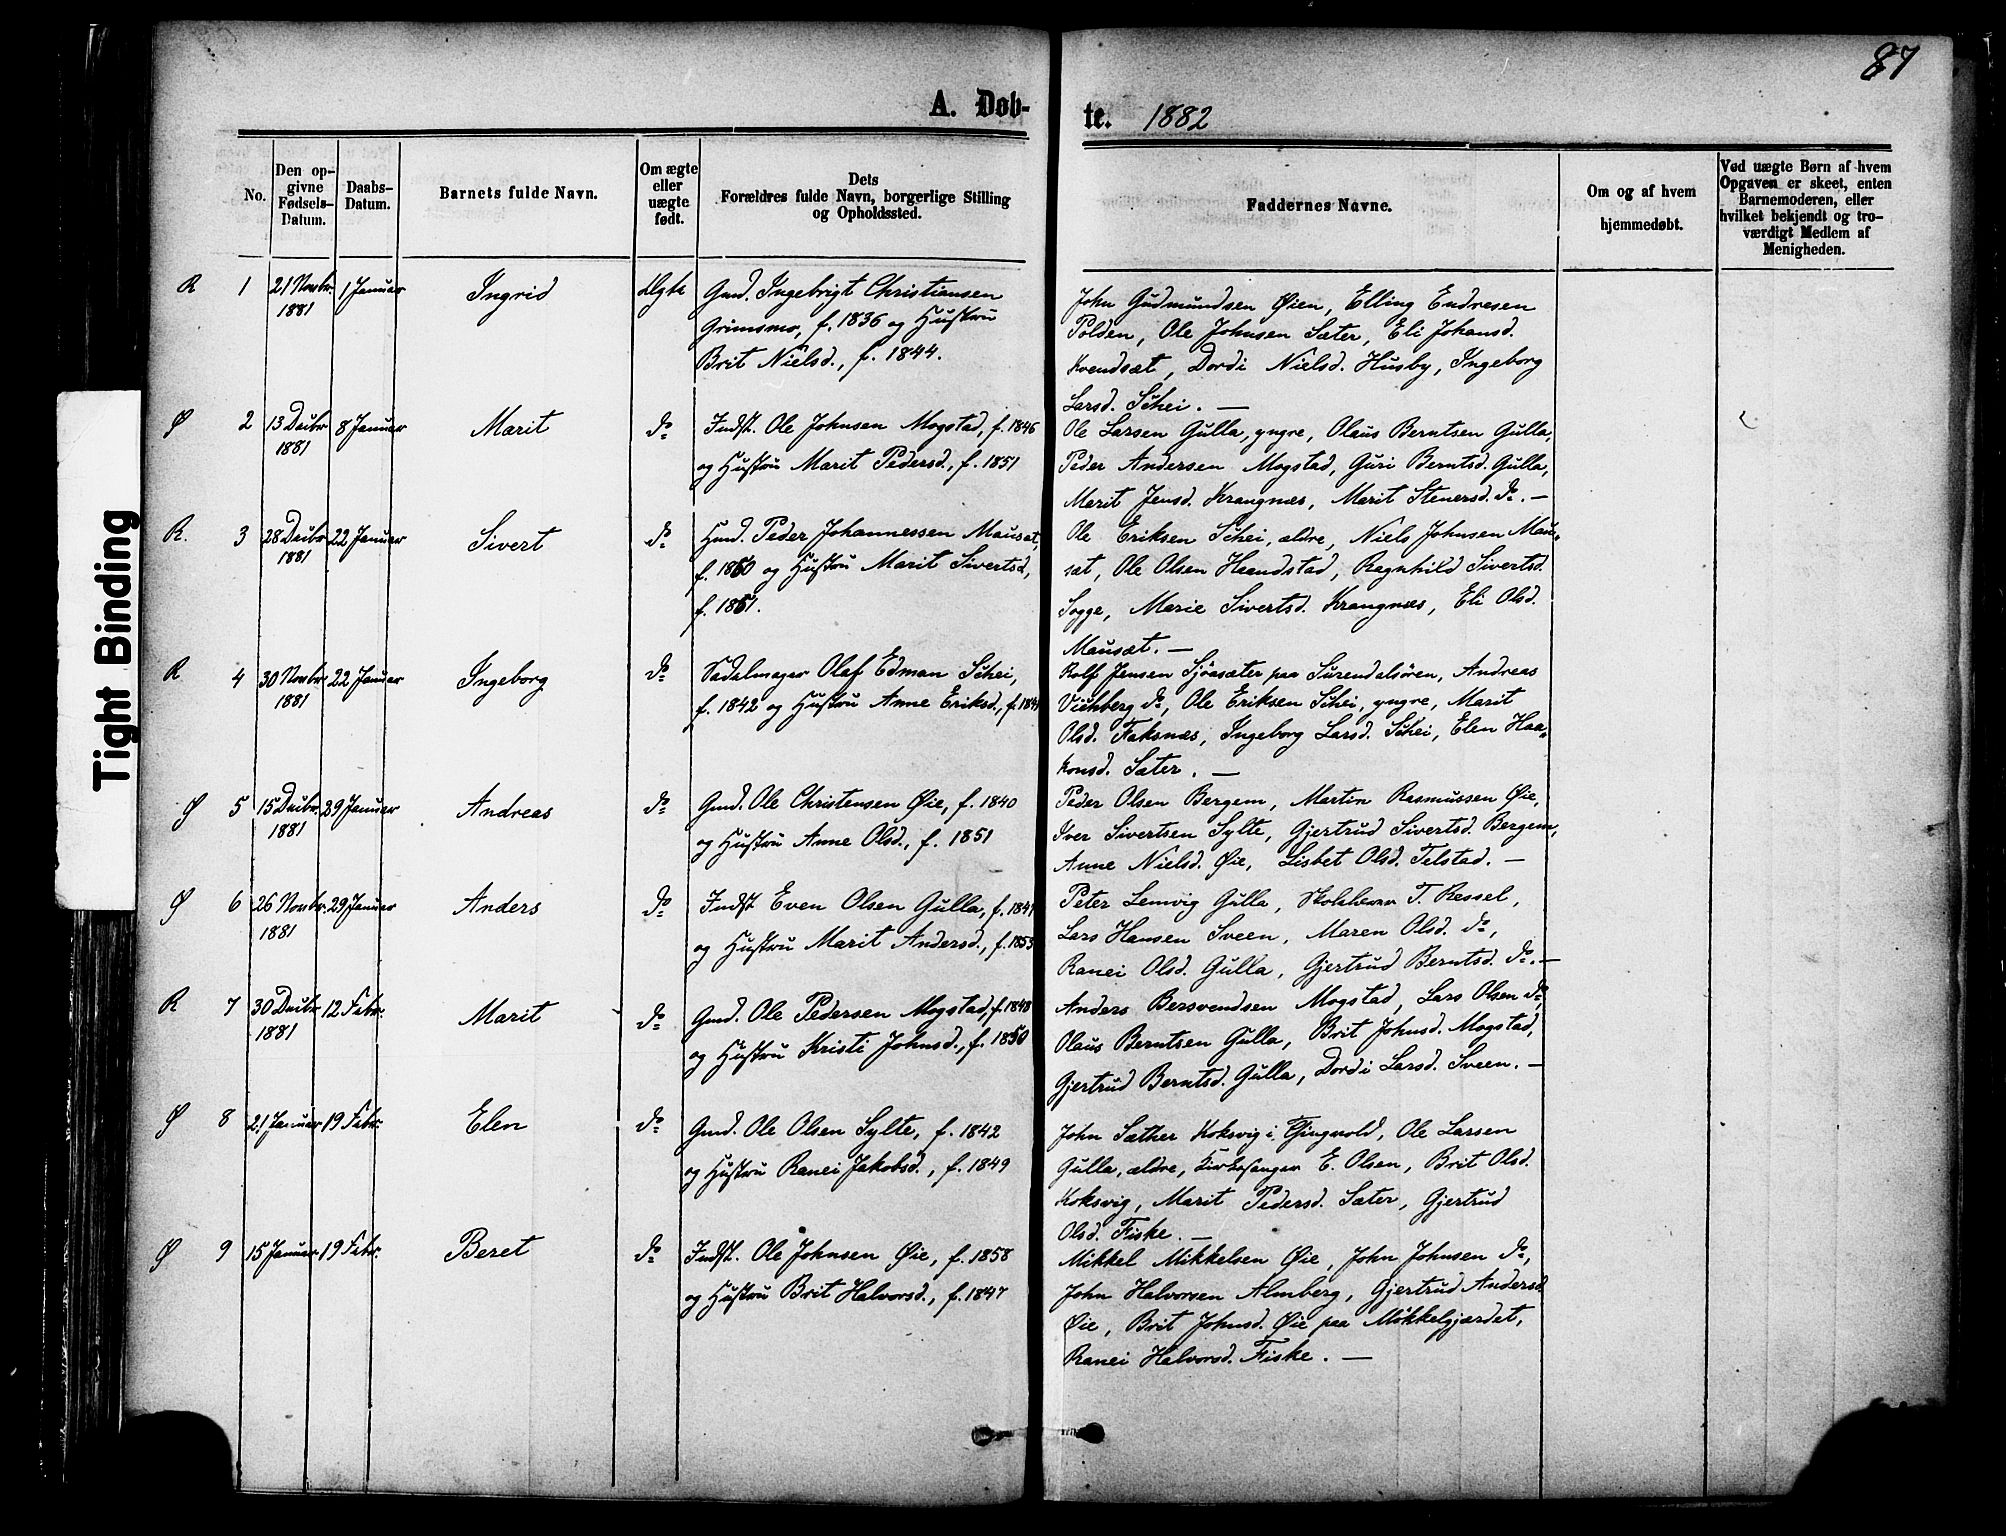 87
A. Døb- te. 1882
No.
Den op-
givne
Fødsels-
Datum.
Daabs-
Datum.
Barnets fulde Navn.
Om ægte
eller
uægte
født.
Dets
Forældres fulde Navn, borgerlige Stilling
og Opholdssted.
Faddernes Navne.
Om og af hvem
hjemmedøbt.
Ved uægte Børn af hvem
Opgaven er skeet, enten
Barnemoderen, eller
hvilket bekjendt og tro-
værdigt Medlem af
Menigheden.
R 1 21 Novbr. 1 Januar Ingrid Ægte
1881
Gmd. Ingebrigt Christiansen
Grimsmo, f. 1836 og Hustru
Brit Nielsd., f. 1844.
John Gudmundsen Øien, Elling Endresen
Polden, Ole Johnsen Sæter, Eli Johansd.
Kvendsæt, Dordi Nielsd. Husby, Ingeborg
Larsd. Schei. —
Ø 2 13 Decbr. 8 Januar Marit do
1881
Indst. Ole Johnsen Mogstad, f. 1846
og Hustru Marit Pedersd., f. 1851
Ole Larsen Gulla, yngre, Olaus Berntsen Gulla,
Peder Andersen Mogstad, Guri Berntsd. Gulla,
Marit Jensd. Krangnæs, Marit Stenersd. do. —
R. 3 28 Decbr. 22 Januar Sivert do
1881
Gmd. Peder Johannessen Mausæt,
f. 1850 og Hustru Marit Sivertsd.,
f. 1851.
Ole Eriksen Schei, ældre, Niels Johnsen Mau-
sæt, Ole Olsen Haandstad, Ragnhild Sivertsd.
Sogge, Marie Sivertsd. Krangnæs, Eli Olsd.
Mausæt. —
R 4 30 Novbr. 22 Januar Ingeborg do
1881
Sadelmager Olaf Edman Schei,
f. 1842 og Hustru Anne Eriksd., f.
Rolf Jensen Sjøasæter paa Surendalsören, Andreas
do, Ole Eriksen Schei, yngre, Marit
Olsd. Faksnæs, Ingeborg Larsd. Schei, Elen Haa-
konsd. Sæter. —
Ø 5 15 Decbr. 29 Januar Andreas do
1881
Gmd. Ole Christensen Øie, f. 1840
og Hustru Anne Olsd., f. 1851
Peder Olsen Bergem, Martin Rasmussen Øie,
Iver Sivertsen Sylte, Gjertrud Sivertsd. Bergem,
Anne Nielsd. Øie, Lisbet Olsd. Telstad. —
Ø 6 26 Novbr. 29 Januar Anders do
1881
Indst. Even Olsen Gulla, f.
og Hustru Marit Andersd., f. 1853
Peter Lemvig Gulla, Skolelærer T. Ressel,
Lars Hansen Sveen, Maren Olsd. do,
Ranei Olsd. Gulla, Gjertrud Berntsd. do. —
R 7 30 Decbr. 12 Febr. Marit do
1881
Gmd. Ole Pedersen Mogstad, f. 1848
og Hustru Kristi Johnsd., f. 1850
Anders Bersvendsen Mogstad, Lars Olsen do,
Olaus Berntsen Gulla, Brit Johnsd. Mogstad,
Gjertrud Berntsd. Gulla, Dordi Larsd. Sveen. —
Ø 8 21 Januar 19 Febr. Elen do
Gmd. Ole Olsen Sylte, f. 1842
og Hustru Ranei Jakobsd., f. 1849
John Sæther Koksvig i Thingvold, Ole Larsen
Gulla, ældre, Kirkesanger E. Olsen, Brit Olsd.
Koksvig, Marit Pedersd. Sæter, Gjertrud
Olsd. Fiske. —
Ø 9 15 Januar 19 Febr. Beret do
Indst. Ole Johnsen Øie, f. 1858
og Hustru Brit Halvorsd., f. 1847
Mikkel Mikkelsen Øie, John Johnsen do,
John Halvorsen Almberg, Gjertrud Andersd.
Øie, Brit Johnsd. Øie paa Mikkelgjærdet,
Ranei Halvorsd. Fiske. —
Tight Binding